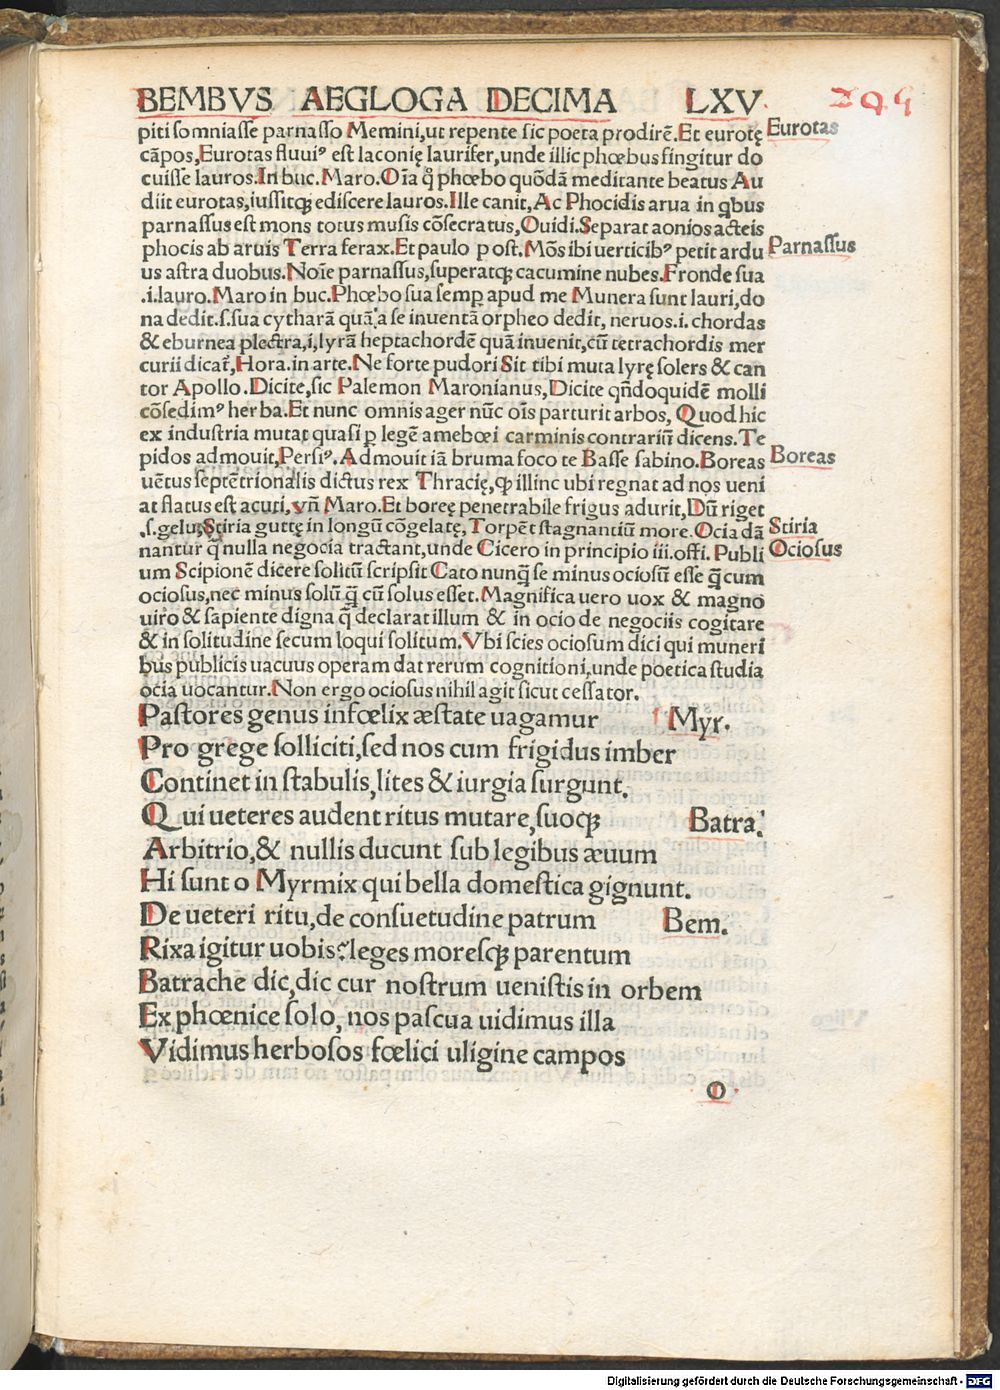 BEMBVS AEGLOGA DECIMA LXV.
piti somniasse parnasso Memini, ut repente sic poeta prodirē. Et eurotę Eurotas
cāpos, Eurotas fluuiꝰ est laconię laurifer, unde illic phœbus fingitur do
cuisse lauros. In buc. Maro. Oīa q̊ phœbo quōdā meditante beatus Au
diit eurotas, iussitqꝫ ediscere lauros. Ille canit, Ac Phocidis arua in qbus
parnassus est mons totus musis cōsecratus, Ouidi. Separat aonios acteis
phocis ab aruis Terra ferax. Et paulo post. Mōs ibi uerticibꝰ petit ardu Parnassus
us astra duobus. Noīe parnassus, superatqꝫ cacumine nubes. Fronde sua
.i. lauro. Maro in buc. Phœbo sua semꝑ apud me Munera sunt lauri, do
na dedit. s. sua cytharā quā a se inuentā orpheo dedit, neruos .i. chordas
& eburnea plectra, i, lyrā heptachordē quā inuenit, cū tetrachordis mer
curii dicat̄, Hora. in arte. Ne forte pudori Sit tibi muta lyrę solers & can
tor Apollo. Dicite, sic Palemon Maronianus, Dicite qn̄doquidē molli
cōsedimꝰ herba. Et nunc omnis ager nūc oīs parturit arbos, Quod hic
ex industria mutat quasi ꝑ legē amebœi carminis contrariū dicens. Te
pidos admouit, Persiꝰ. Admouit iā bruma foco te Basse sabino. Boreas Boreas
uētus septētrionalis dictus rex Thracię, ꝙ illinc ubi regnat ad nos ueni
at flatus est acuti, vn̄ Maro. Et boreę penetrabile frigus adurit, Dū riget
.s. gelu; Stiria guttę in longū cōgelatę, Torpēt stagnantiū more. Ocia dā Stiria
nantur q̄ nulla negocia tractant, unde Cicero in principio iii. offi. Publi Ociosus
um Scipionē dicere solitū scripsit Cato nunq̄ se minus ociosū esse q̄ cum
ociosus, nec minus solū q̄ cū solus esset. Magnifica uero uox & magno
uiro & sapiente digna q̄ declarat illum & in ocio de negociis cogitare
& in solitudine secum loqui solitum. Vbi scies ociosum dici qui muneri
bus publicis uacuus operam dat rerum cognitioni, unde poetica studia
ocia uocantur. Non ergo ociosus nihil agit sicut cessator.
Pastores genus infœlix æstate uagamur Myr.
Pro grege solliciti, sed nos cum frigidus imber
Continet in stabulis, lites & iurgia surgunt.
Qui ueteres audent ritus mutare, suoqꝫ Batra.
Arbitrio, & nullis ducunt sub legibus æuum
Hi sunt o Myrmix qui bella domestica gignunt.
De ueteri ritu, de consuetudine patrum Bem.
Rixa igitur uobis? leges moresqꝫ parentum
Batrache dic, dic cur nostrum uenistis in orbem
Ex phœnice solo, nos pascua uidimus illa
Vidimus herbosos fœlici uligine campos
O
Digitalisierung gefördert durch die Deutsche Forschungsgemeinschaft - DFG